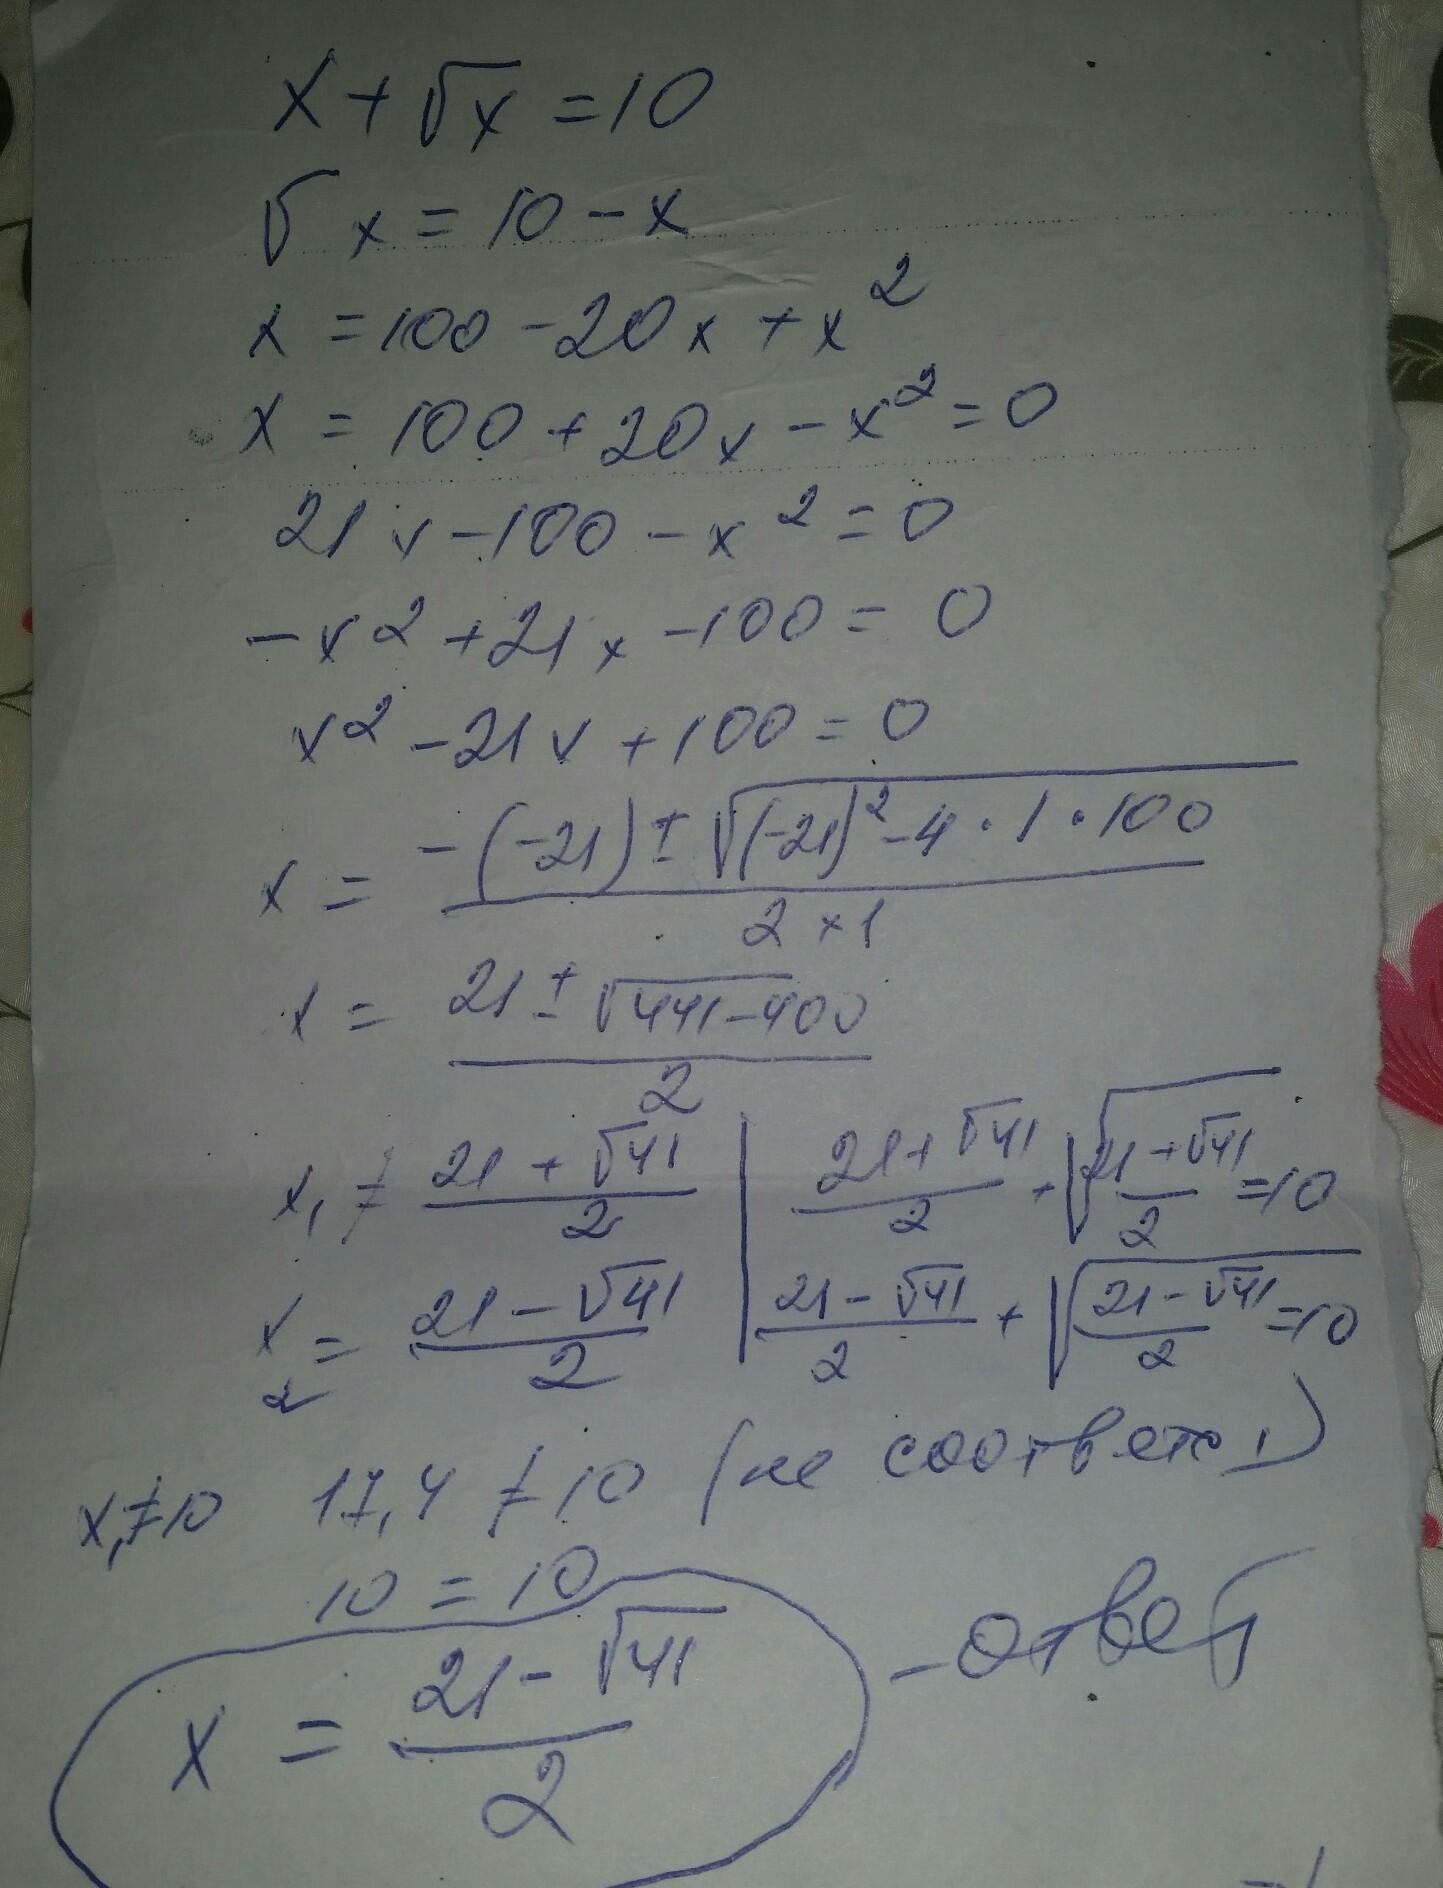 x + √x = 10
√x = 10 - x
x = 100 - 20x + x²
x = 100 + 20x - x² = 0
21x - 100 - x² = 0
-x² + 21x - 100 = 0
x² - 21x + 100 = 0
x = (-(-21) ± √((-21)² - 4 · 1 · 100)) / (2 × 1)
x = (21 ± √(441 - 400)) / 2
x₁ ≠ (21 + √41) / 2 | (21 + √41) / 2 + √((21 + √41) / 2) = 10
x₂ = (21 - √41) / 2 | (21 - √41) / 2 + √((21 - √41) / 2) = 10
x₁ ≠ 10 17,4 ≠ 10 (не соответс)
10 = 10
x = (21 - √41) / 2 - ответ